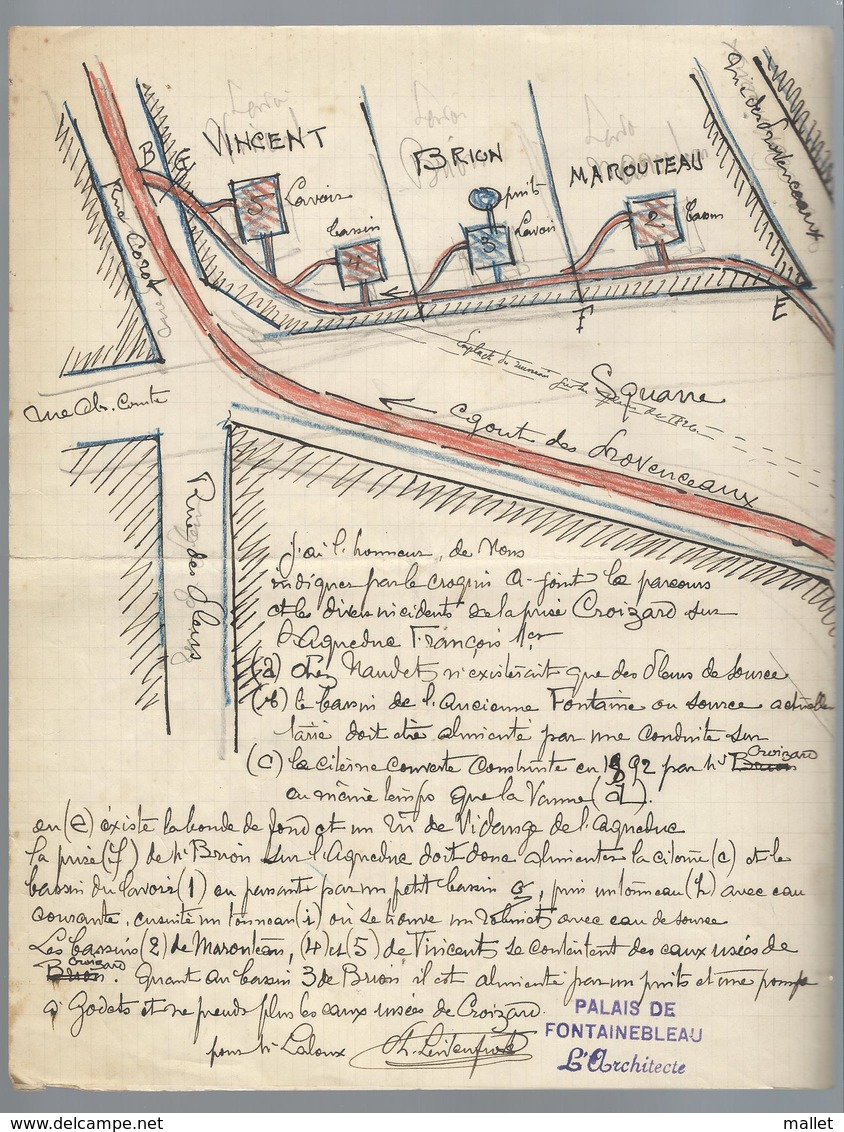 VINCENT
BRION
MAROUTEAU
Rue des Provenceaux
B
G
5
Lavoir
bassin
4
puits
3
Lavoir
2
bassin
Rue Corot
F
E
Square
rue Ab. Comte
egout des Provenceaux
Rue des Pleus
j'ai l'honneur, de Vous
indiquer par le croquis ci-joint le parcours
et les divers incidents de la prise Croizard sur
l'Aqueduc François 1er
(a) chez Naudet, n'existerait que des Pleurs de source
(b) le bassin de l'ancienne Fontaine ou source actuellem
tarie doit être alimenté par une conduite sur
(c) la citerne couverte construite en 1892 par Mr Brion Croizard
en même temps que la Vanne (d).
en (e) éxiste la bonde de fond et un de Vidange de l'aqueduc
la prise (f) de Mr Brion sur l'Aqueduc doit donc alimenter la citerne (c) et le
bassin du lavoir (1) en passant par un petit bassin g, puis un tonneau (h) avec eau
courante, ensuite un tonneau (i) où se trouve un robinet avec eau de source
Les bassins (2) de Marouteau, (4) et (5) de Vincent se contentent des eaux usées de
Brion Croizard. Quant au bassin 3 de Brion il est alimenté par un puits et une pompe
à Godets et ne prends plus les eaux usées de Croizard.
pour Mr Laloux
PALAIS DE
FONTAINEBLEAU
L'Architecte
mallet